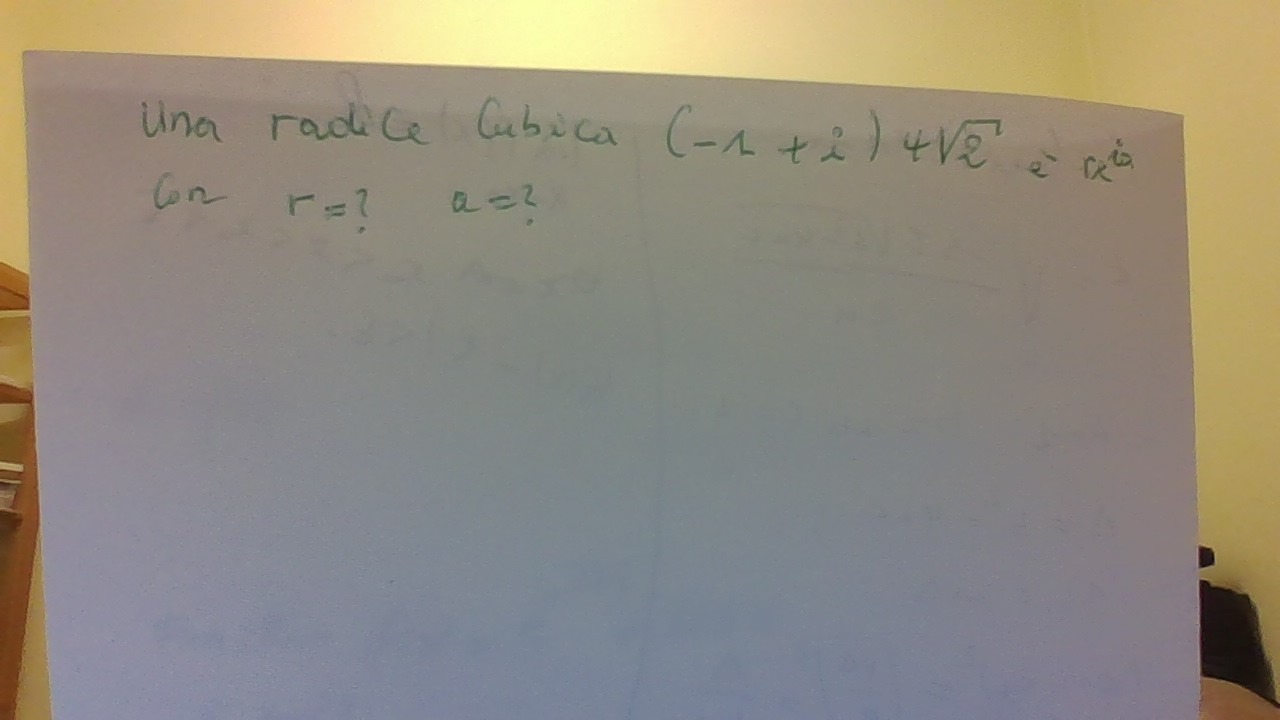 Una radice Cubica (-1 + i) 4√2 è rx^ia
Con r=? a=?